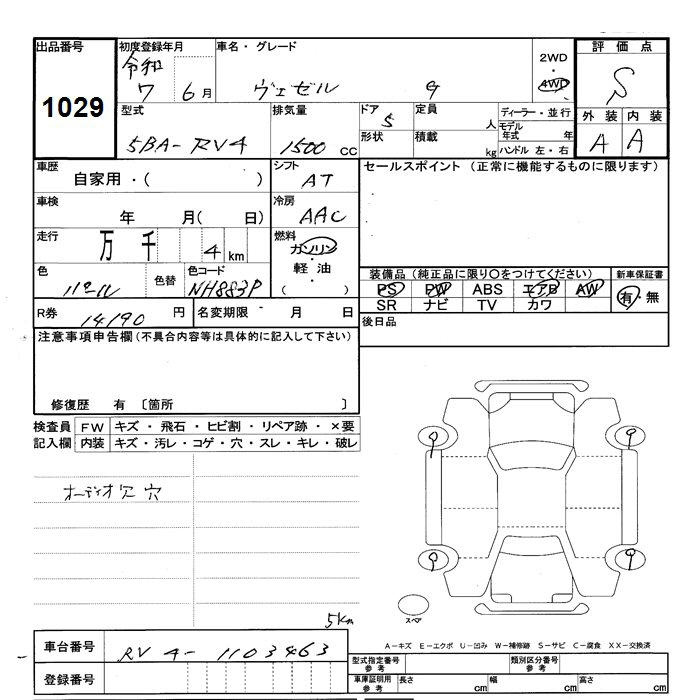 出品番号 初度登録年月 車名・グレード 2WD・4WD 評価点
1029 令和 7 6月 ヴェゼル S
型式 排気量 ドア 定員 ディーラー・並行 外装 内装
5BA-RV4 1500 CC 5 人 モデル年式 年 A A
形状 積載 kg ハンドル 左・右
車歴 シフト セールスポイント (正常に機能するものに限ります)
自家用・( ) AT
車検 冷房
年 月( 日) AAC
走行 燃料
万 千 4 km ガソリン・軽油( )
色 色替 色コード 装備品(純正品に限り○をつけてください) 新車保証書
パール NH883P PS PW ABS エアB AW 有・無
SR ナビ TV カワ
R券 14190 円 名変期限 月 日 後日品
注意事項申告欄(不具合内容等は具体的に記入して下さい)
修復歴 有 〔箇所 〕
検査員 FW キズ・飛石・ヒビ割・リペア跡・×要
記入欄 内装 キズ・汚レ・コゲ・穴・スレ・キレ・破レ
オーディオ穴
スペア
5Km
A-キズ E-エクボ U-凹み W-補修跡 S-サビ C-腐食 XX-交換済
車台番号 RV4-1103463
型式指定番号 参考 類別区分番号 参考
登録番号 車庫証明用 参考 長さ cm 幅 cm 高さ cm